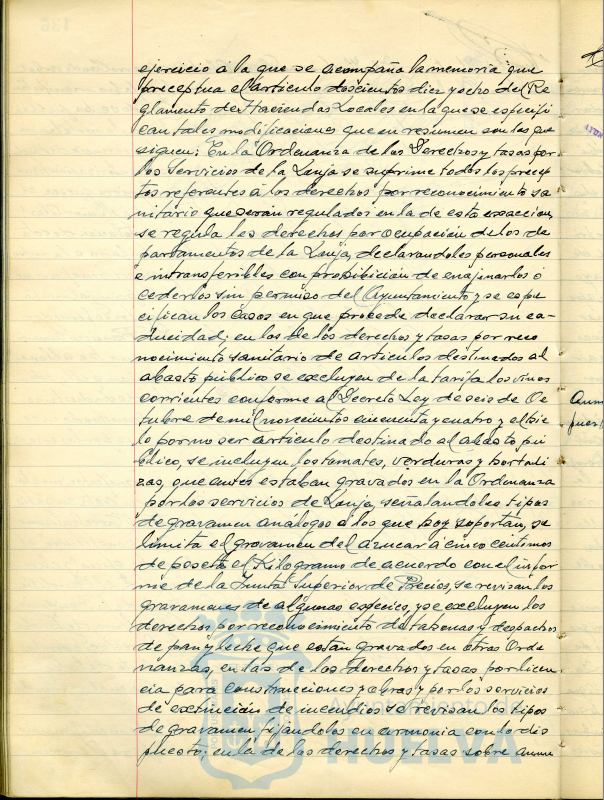 ejercicio á la que se acompaña la memoria que
preceptua el articulo doscientos diez y ocho del Re
glamento de Haciendas Locales en la que se especifi
can tales modificaciones que en resumen son las que
siguen: En la Ordenanza de los Derechos y tasas por
los servicios de la Lonja se suprime todos los precep
tos referentes á los derechos por reconocimiento sa
nitario que seran regulados en la de esta exaccion,
se regula los derechos por ocupacion de los de
partamentos de la Lonja, declarandoles personales
e intransferibles con prohibicion de enajenarlos ó
cederlos sin permiso del Ayuntamiento y se espe
cifican los casos en que procede declarar su ca-
ducidad; en los de los derechos y tasas por reco
nocimiento sanitario de articulos destinados al
abasto público se excluyen de la tarifa los vinos
corrientes conforme al Decreto Ley de seis de Oc
tubre de mil novecientos cincuenta y cuatro y el hie
lo por no ser articulo destinado al abasto pú
blico, se incluyen los tomates, verduras y hortali
zas, que antes estaban gravados en la Ordenanza
por los servicios de Lonja, señalandoles tipos
de gravamen análogos á los que hoy soportan, se
limita el gravamen del azucar á cinco centimos
de peseta el Kilogramo de acuerdo con el infor
me de la Junta Superior de Precios, se revisan los
gravamenes de algunas especies, y se excluyen los
derechos por reconocimiento de tahonas y despachos
de pan y leche que estan gravados en otras Orde
nanzas, en las de los derechos y tasas por licen
cia para construcciones y obras y por los servicios
de extincion de incendios se revisan los tipos
de gravamen fijandolos en armonia con lo dis
puesto; en la de los derechos y tasas sobre
HUELVA